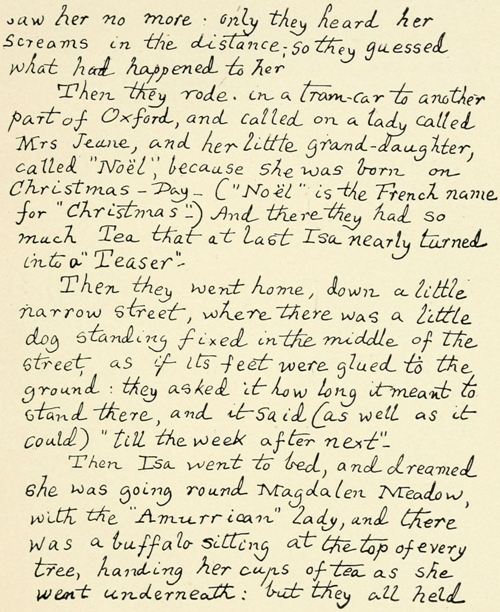 saw her no more: only they heard her
screams in the distance; so they guessed
what had happened to her
Then they rode. in a tram-car to another
part of Oxford, and called on a lady called
Mrs Jeune, and her little grand-daughter,
called "Noël", because she was born on
Christmas-Day- ("Noël" is the French name
for "Christmas"-) And there they had so
much Tea that at last Isa nearly turned
into a "Teaser"-
Then they went home, down a little
narrow street, where there was a little
dog standing fixed in the middle of the
street, as if its feet were glued to the
ground: they asked it how long it meant to
stand there, and it said (as well as it
could) "till the week after next"-
Then Isa went to bed, and dreamed
she was going round Magdalen Meadow,
with the "Amurrican" lady, and there
was a buffalo sitting at the top of every
tree, handing her cups of tea as she
went underneath: but they all held